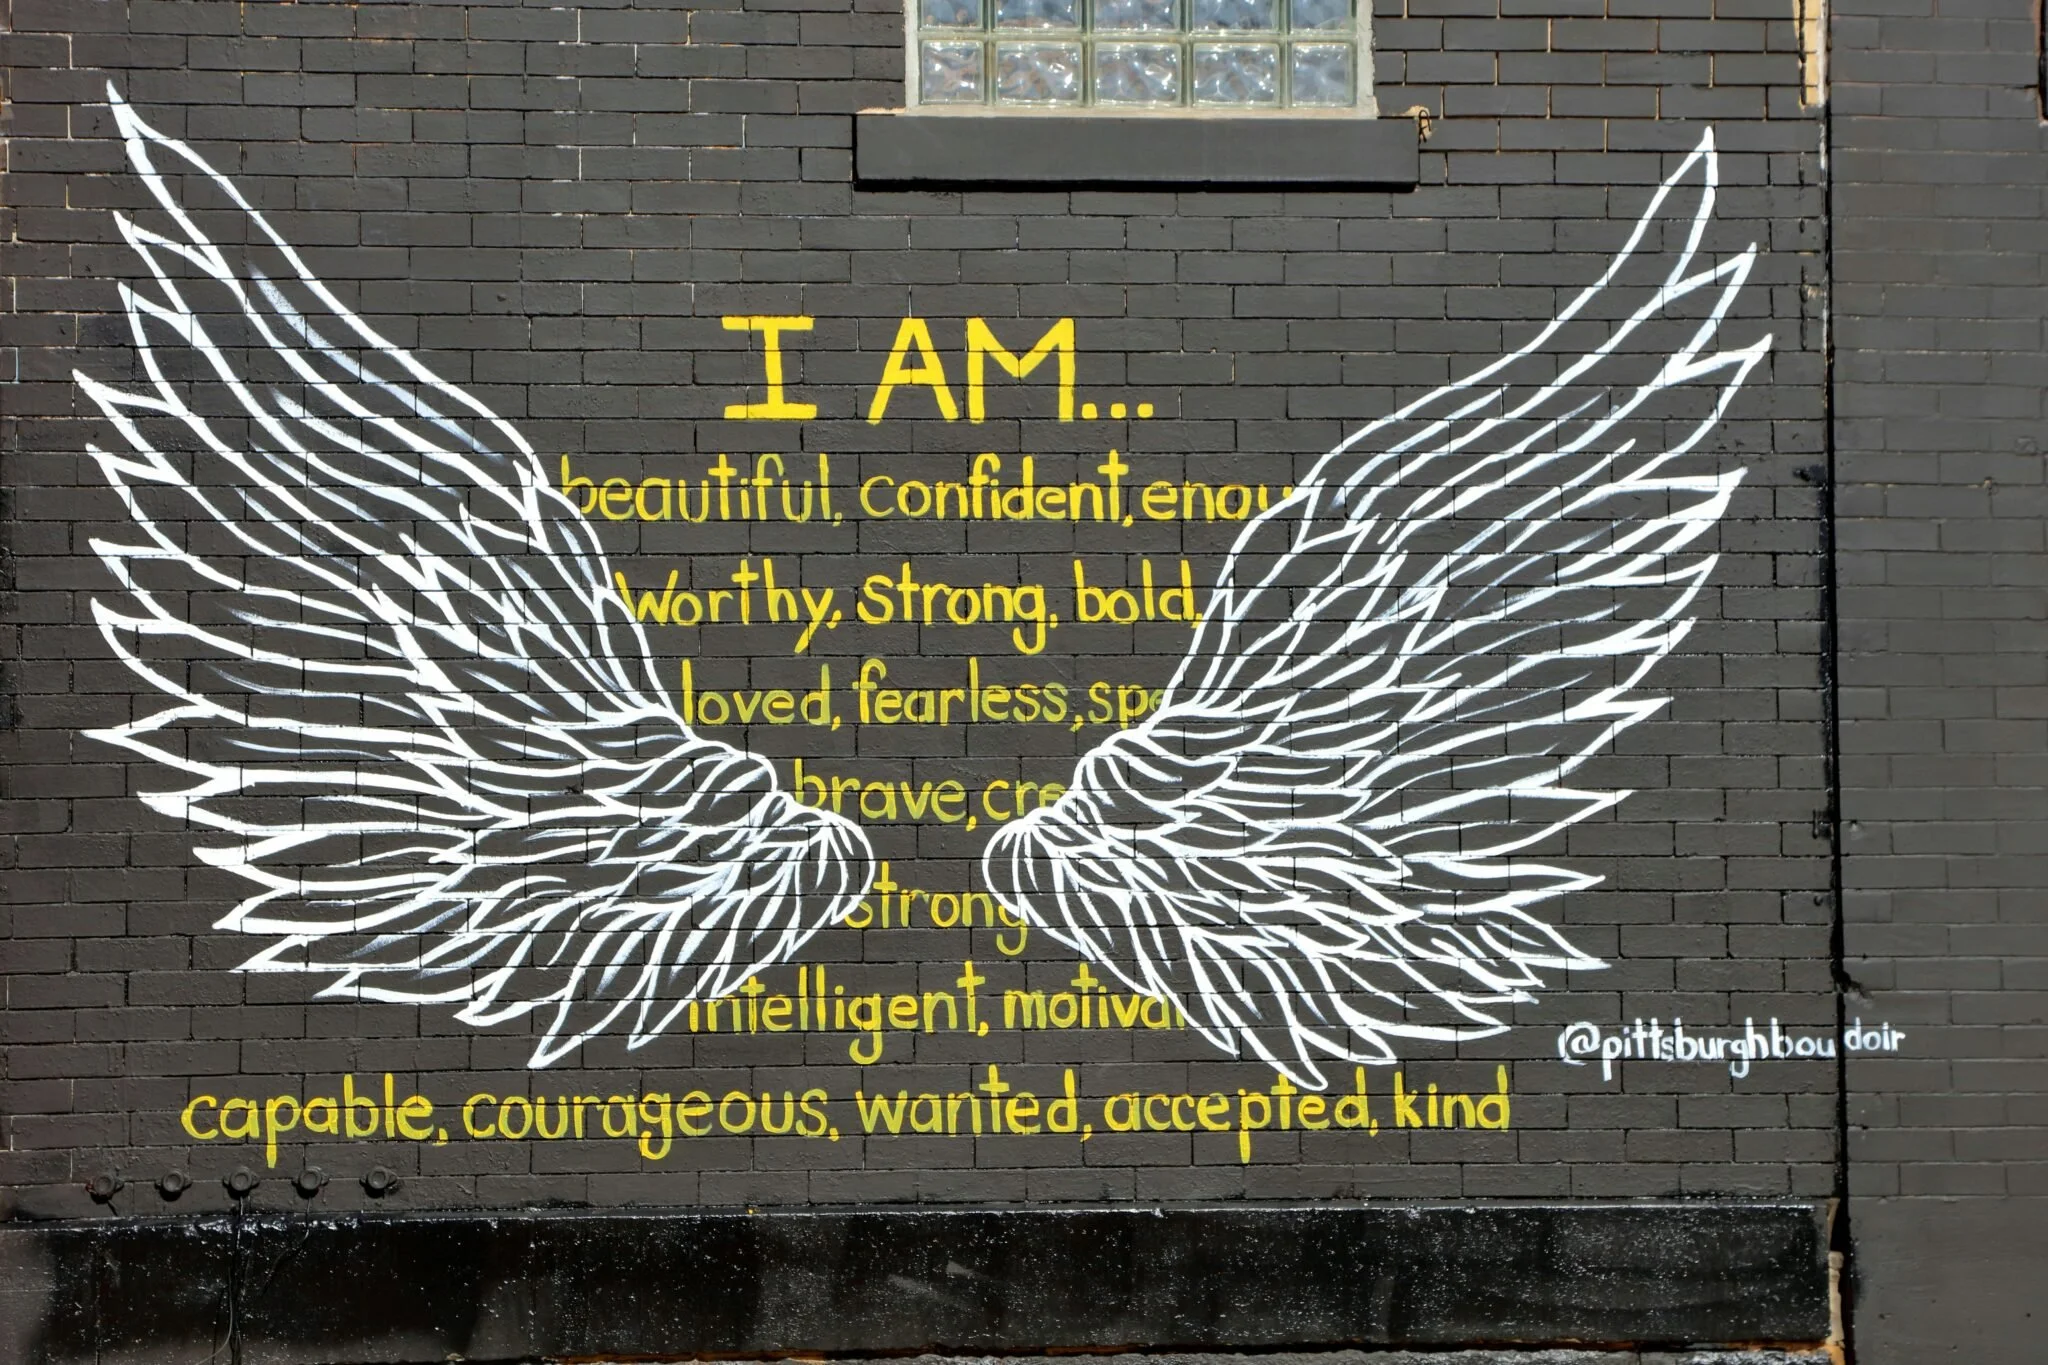 I AM...
beautiful, confident, enou
Worthy, strong, bold,
loved, fearless, spe
brave, cre
strong
intelligent, motivat
capable, courageous, wanted, accepted, kind
@pittsburghboudoir